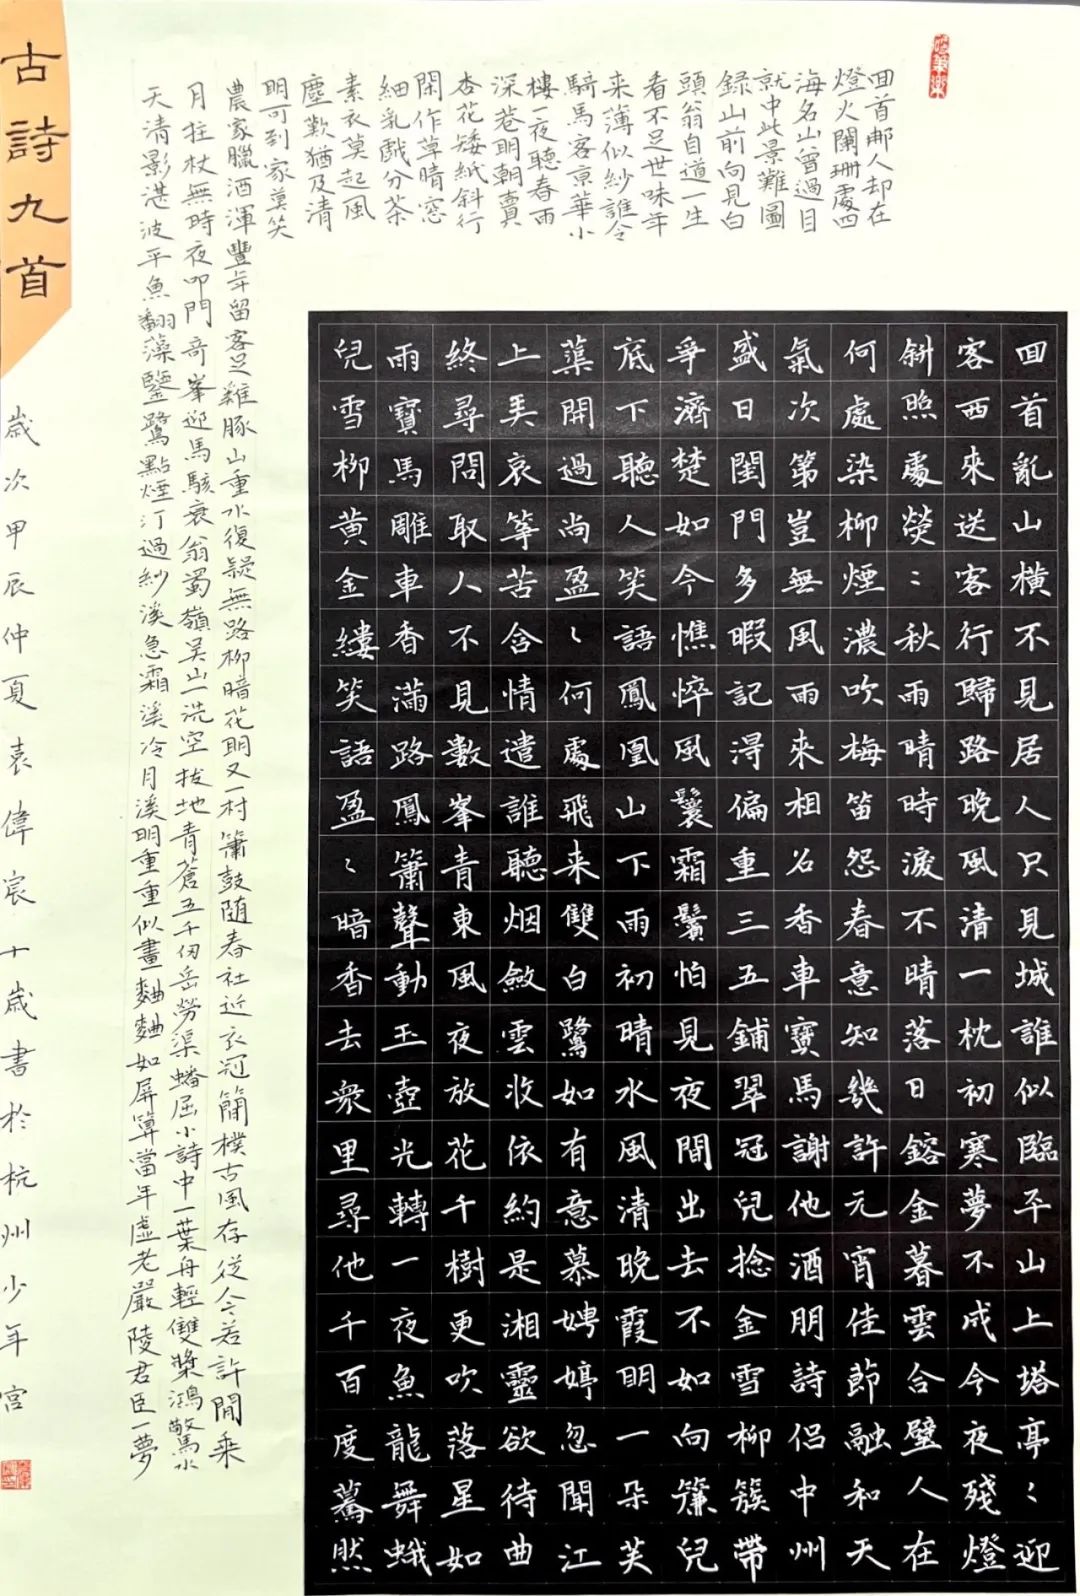 古詩九首
回首亂山橫不見居人只見城誰似臨平山上塔亭〻迎
客西來送客行歸路晚風清一枕初寒夢不成今夜殘燈
斜照處熒〻秋雨晴時淚不晴落日鎔金暮雲合璧人在
何處染柳煙濃吹梅笛怨春意知幾許元宵佳節融和天
氣次第豈無風雨來相召香車寶馬謝他酒朋詩侶中州
盛日閨門多暇記得偏重三五鋪翠冠兒捻金雪柳簇帶
爭濟楚如今憔悴風鬟霜鬢怕見夜間出去不如向簾兒
底下聽人笑語鳳凰山下雨初晴水風清晚霞明一朵芙
蕖開過尚盈〻何處飛来雙白鷺如有意慕娉婷忽聞江
上弄哀箏苦含情遣誰聽烟斂雲收依約是湘靈欲待曲
終尋問取人不見數峯青東風夜放花千樹更吹落星如
雨寶馬雕車香滿路鳳簫聲動玉壺光轉一夜魚龍舞蛾
兒雪柳黄金縷笑語盈〻暗香去衆里尋他千百度驀然
回首那人却在
燈火闌珊處四
海名山曾過目
就中此景難圖
録山前向見白
頭翁自道一生
看不足世味年
来薄似紗誰令
騎馬客京華小
樓一夜聽春雨
深巷明朝賣
杏花矮紙斜行
閑作草晴窓
細乳戲分茶
素衣莫起風
塵歎猶及清
明可到家莫笑
農家臘酒渾豐年留客足雞豚山重水復疑無路柳暗花明又一村簫鼓随春社近衣冠簡樸古風存從今若許閒乘
月拄杖無時夜叩門奇峯迎馬駭衰翁蜀嶺吴山一洗空拔地青蒼五千仞岳勞渠蟠屈小詩中一葉舟輕雙槳鴻驚水
天清影湛波平魚翻藻鑒鷺點煙汀過紗溪急霜溪冷月溪明重重似畫麯麯如屏算當年虛老嚴陵君臣一夢
歲次甲辰仲夏袁偉宸十歲書於杭州少年宮